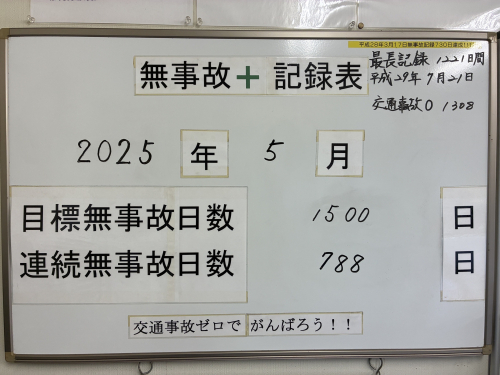 平成29年3月17日無事故記録730日達成!!
最長記録 1221日間
平成29年7月21日
交通事故0 1308
無事故＋記録表
2025 年 5 月
目標無事故日数 1500 日
連続無事故日数 788 日
交通事故ゼロで がんばろう！！